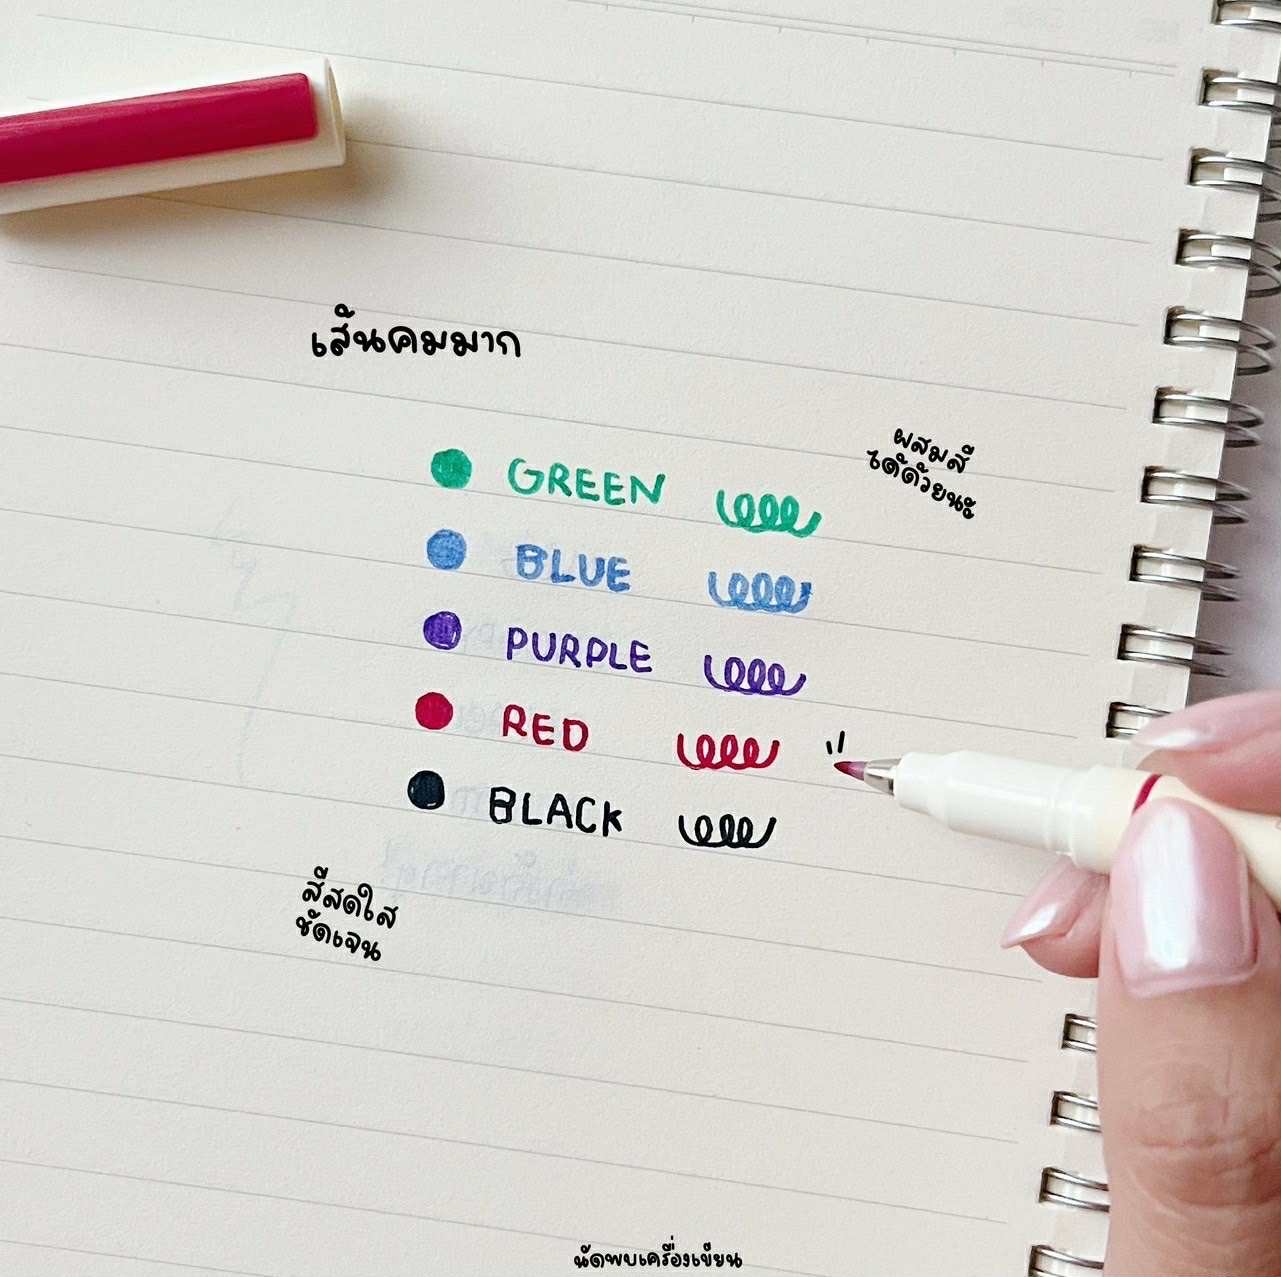 เส้นคมมาก
ผสมสี
ได้ด้วยนะ
GREEN
BLUE
PURPLE
RED
BLACK
สีสดใส
ชัดเจน
นัดพบเครื่องเขียน